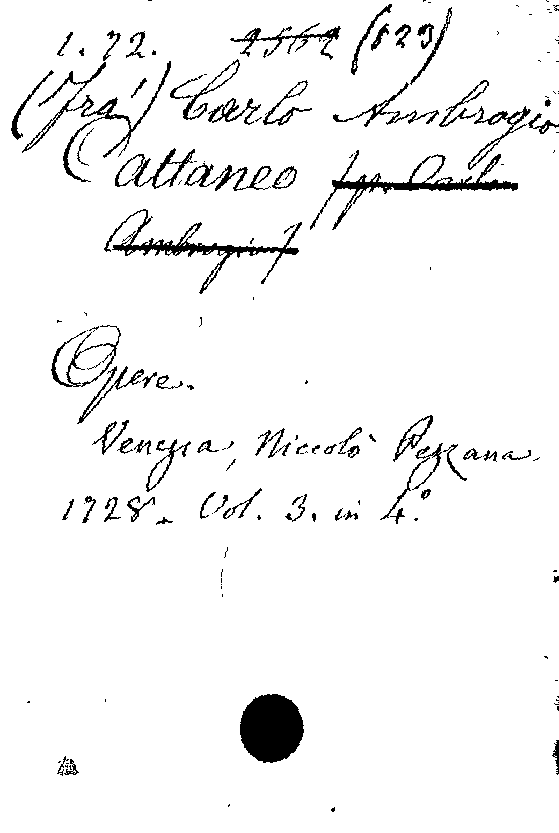 1.72. 2562 (623)
(Fra') Carlo Ambrogio
Cattaneo [p. Carlo
Ambrogio]
Opere.
Venezia, Niccolò Pezzana
1728. Vol. 3. in 4.°